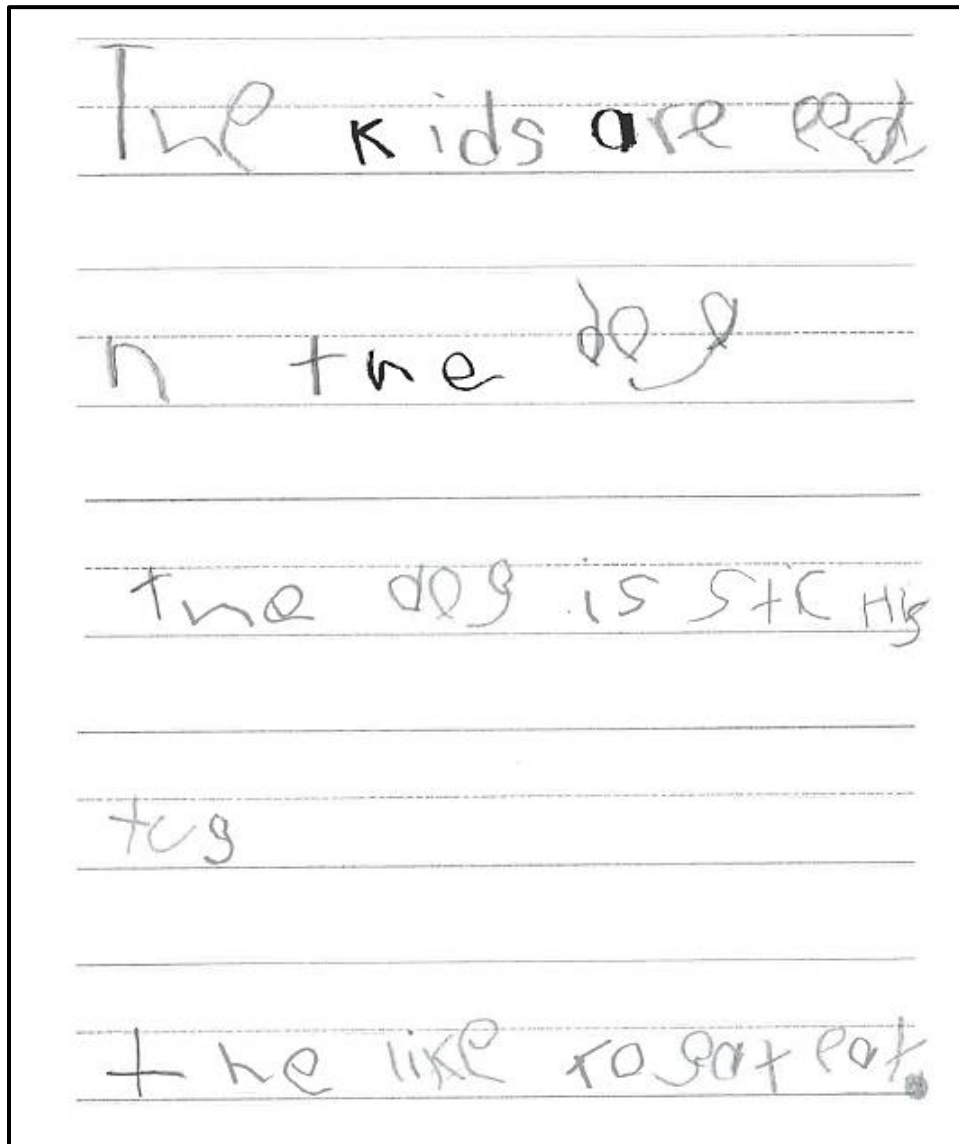 The kids are eed
n the dog
the dog is stic His
tug
the like to eat eat.